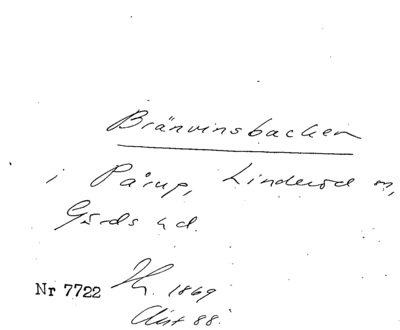 Bränvinsbacken
i Pårup, Linderöd sn,
Gärds hd.
Nr 7722 1869
88.